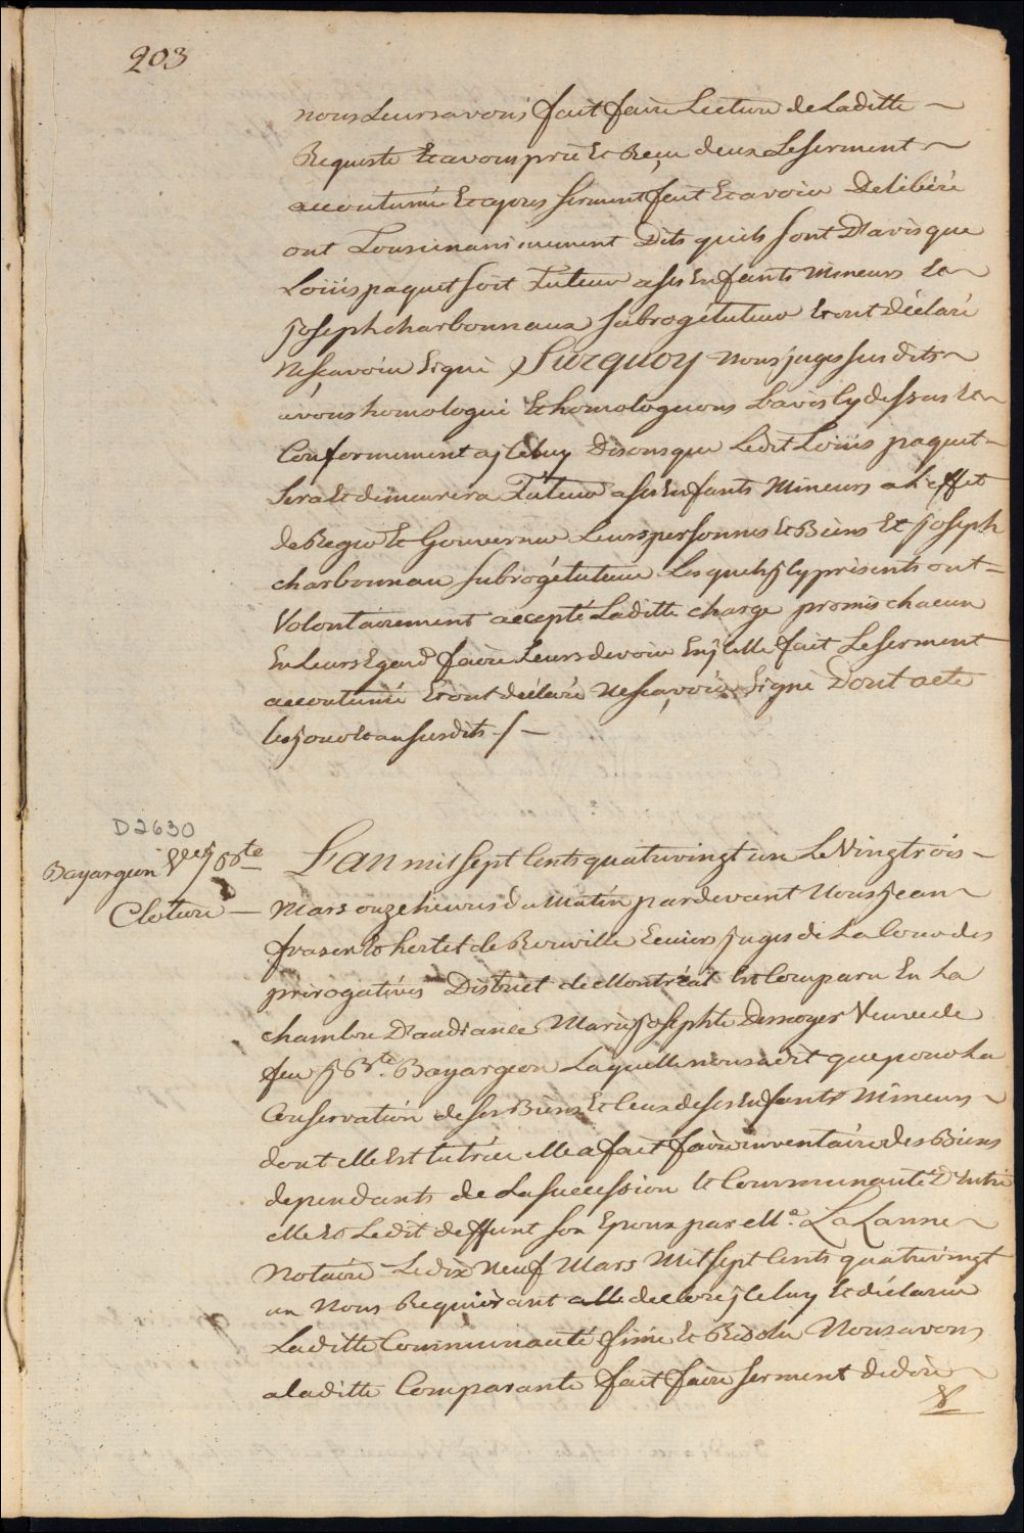 203
nous Leurs avons fait faire Lecture de Laditte
Requeste Et avons pris Et Reçu deux Le serment
accoutumé Et apres serment fait Et avoir Deliberé
ont Tous unanimement Dits quils sont D'avis que
Loüis paquet soit Tuteur a ses Enfants Mineurs Et
joseph charbonneaux subrogé tuteur Et ont Déclaré
ne sçavoir signé Surquoy nous juges sus dits
avons homologué Et homologuons L'avis Cy dessus Et
Conformement a jCeluy Disons que Ledit Loüis paquet
sera Et demeurera Tuteur a ses Enfants Mineurs a L'effet
de Regir Et Gouverner Leurs personnes Et Biens Et joseph
charbonneau subrogé tuteur Lesquels jCy présents ont
Volontairement accepté Laditte charge promis chacun
En Leurs Egard faire Leurs devoir En jCelle fait Le serment
accoutumé Et ont déclaré ne sçavoir signé Dont acte
les jour Et an susdits /
D2630
Bayargeon Vve j Bte
Cloture
L'an mil sept Cents quatre vingt un Le Vingt rois
Mars onze heures du Matin pardevant Nous jean
fraser Et hertel de Rouville Ecuiers juges de La Cour des
prérogatives District de Montréal Est Comparu En La
chambre D'audiance Marie josephte Desnoyer Veuve de
feu j Bte. Bayargeon Laquelle nous a dit que pour La
Conservation de ses Biens Et Ceux de ses Enfants Mineurs
dont elle Est tutrice elle a fait faire inventaire des Biens
dependants de La succession Et Communauté D'Entre
elle Et Ledit deffunt son Epoux par Me. LaLanne
Notaire Le dix Neuf Mars Mil sept Cents quatre vingt
un Nous Requierant de clore jCeluy Et déclarer
Laditte Communauté finie Et Resolu Nous avons
a laditte Comparante fait faire serment de dire